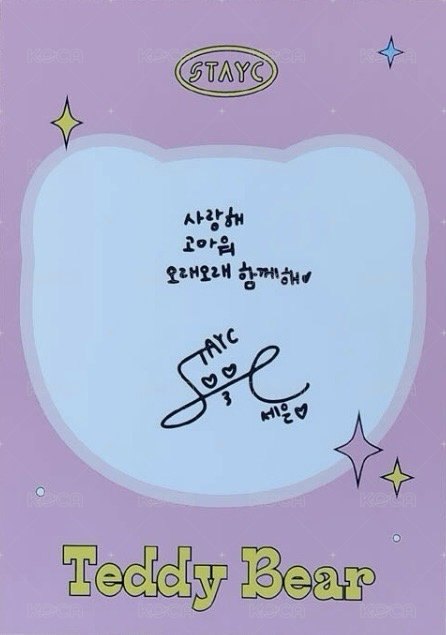 STAYC
사랑해
고마워
오래오래 함께해♥
STAYC
세은♡
Teddy Bear